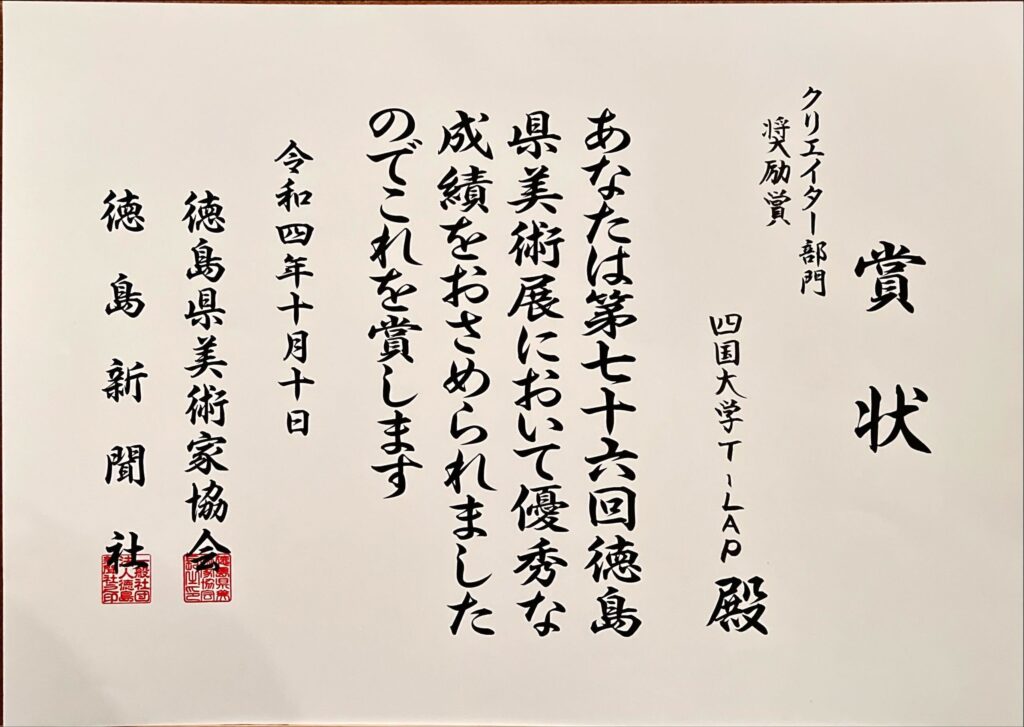 賞状
クリエイター部門
奨励賞
四国大学T-LAP殿
あなたは第七十六回徳島
県美術展において優秀な
成績をおさめられました
のでこれを賞します
令和四年十月十日
徳島県美術家協会
徳島新聞社